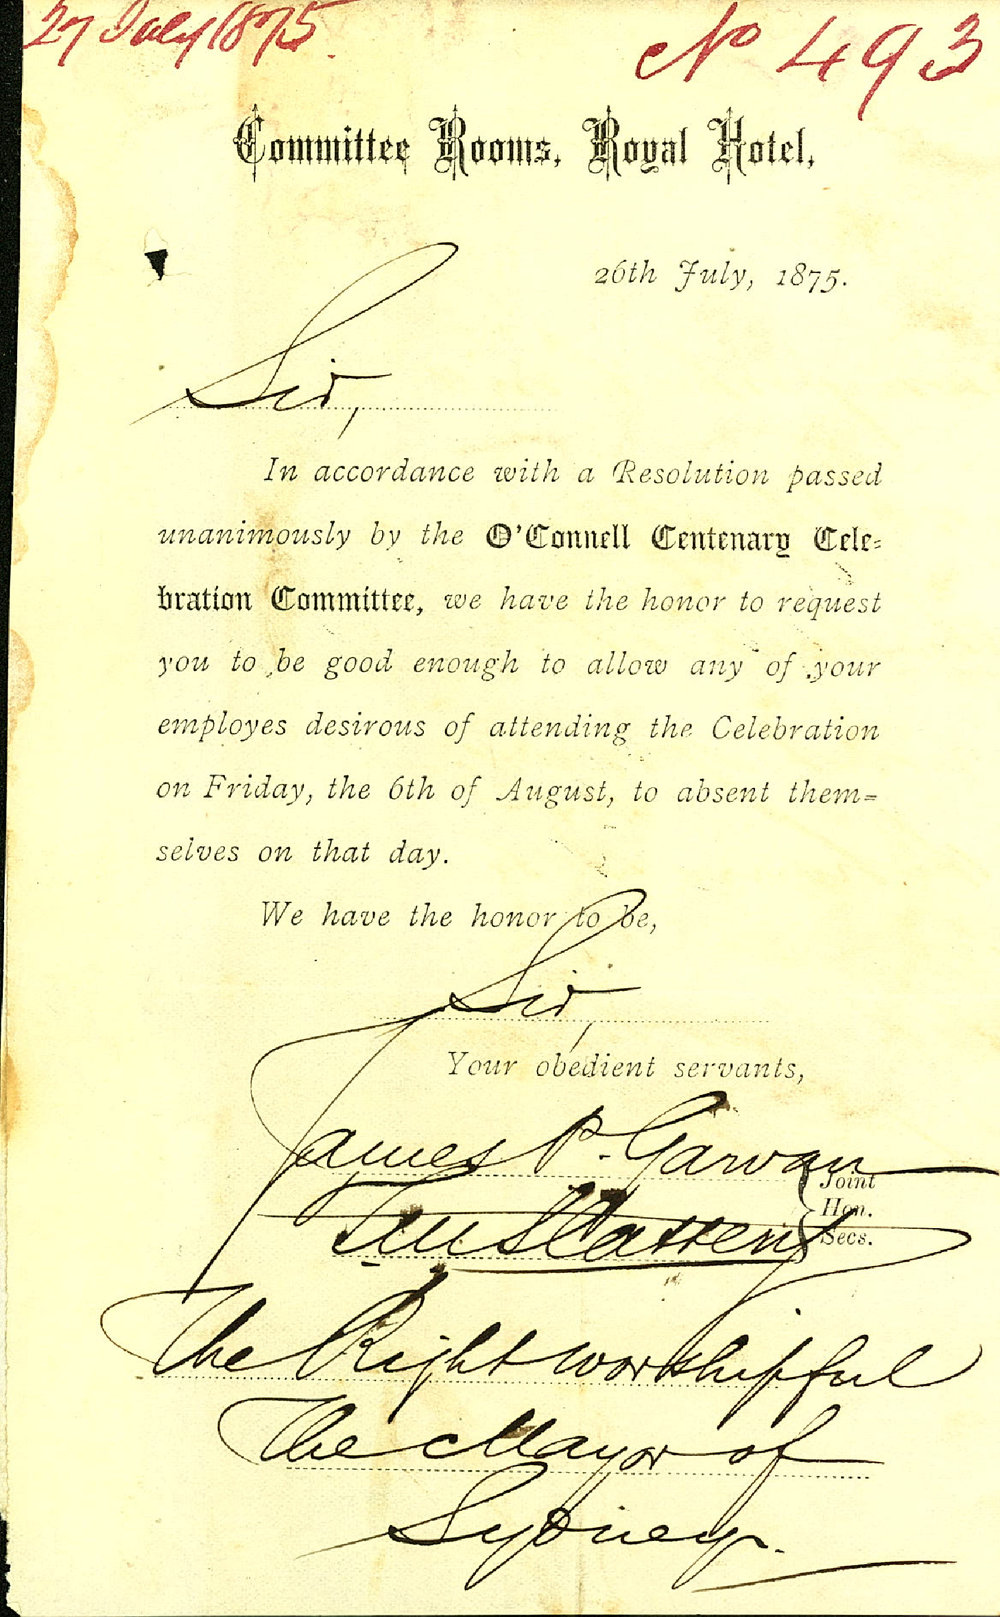 27 July 1875
No 493
Committee Rooms, Royal Hotel,
26th July, 1875.
Sir,
In accordance with a Resolution passed
unanimously by the O'Connell Centenary Cele=
bration Committee, we have the honor to request
you to be good enough to allow any of your
employes desirous of attending the Celebration
on Friday, the 6th of August, to absent them=
selves on that day.
We have the honor to be,
Sir,
Your obedient servants,
James P. Garvan
Slattery
Joint
Hon.
Secs.
The Right worshipful
The Mayor of
Sydney.